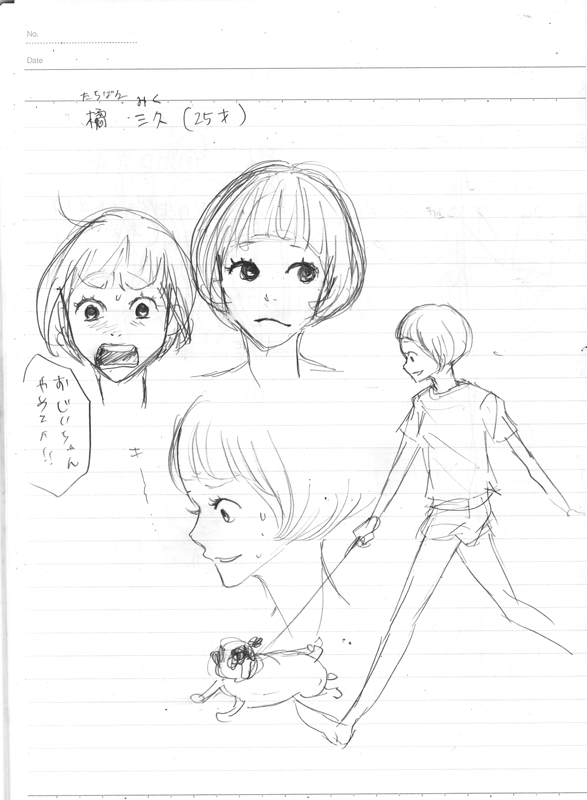 No.
Date
たちばな みく
橘 三久 (25才)
おじいちゃん
やめてよ!!
キ